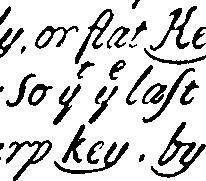 ly, or flat Ke
So yᵗ yᵉ laſt
rp key. by